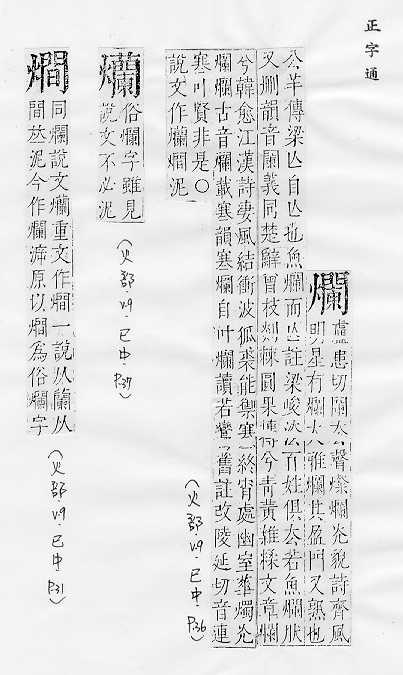 正字通
爛
盧患切闌去聲燦爛光貌詩齊風
明星有爛大雅爛其盈門又熟也
公羊傳梁亡自亡也魚爛而亡註梁峻法百姓俱去若魚爛肰
又刪韻音闌義同楚辭曾枝剡棘圓果摶兮靑黃雜糅文章爛
兮韓愈江漢詩凄風結衝波狐裘能禦寒終宵處幽室華燭光
爛爛古音爛載寒韻寒爛自叶爛讀若鸞舊註改陵延切音連
寒叶賢非是○
說文作爤燗泥
(火部.V9.巳中.P36)
爤
俗爛字雖見
說文不必泥
(火部.V9.巳中.P37)
燗
同爛說文爛重文作燗一說从蘭从
間𠀤泥今作爛滓原以燗爲俗爛字
(火部.V9.巳中.P31)